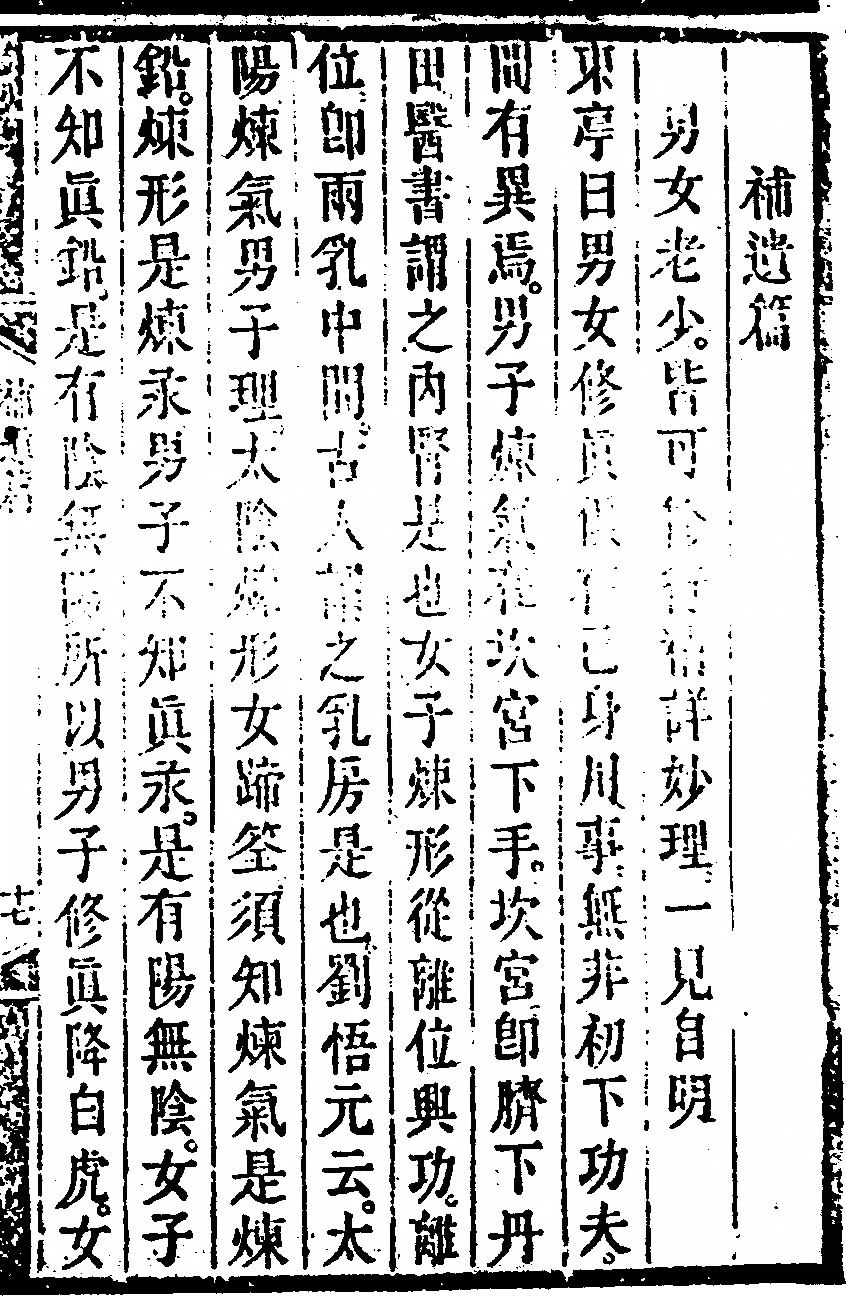 補遺篇
男女老少。皆可修行補詳妙理一見自明
東亭曰男女修眞俱在己身用事無非初下功夫。
間有異焉。男子煉氣在坎宮下手。坎宮卽臍下丹
田醫書謂之內腎是也女子煉形從離位興功。離
位卽兩乳中間。古人謂之乳房是也劉悟元云。太
陽煉氣男子理太陰煉形女蹄筌須知煉氣是煉
鉛。煉形是煉汞男子不知眞汞。是有陽無陰。女子
不知眞鉛。是有陰無陽所以男子修眞降白虎。女
補遺篇
十七